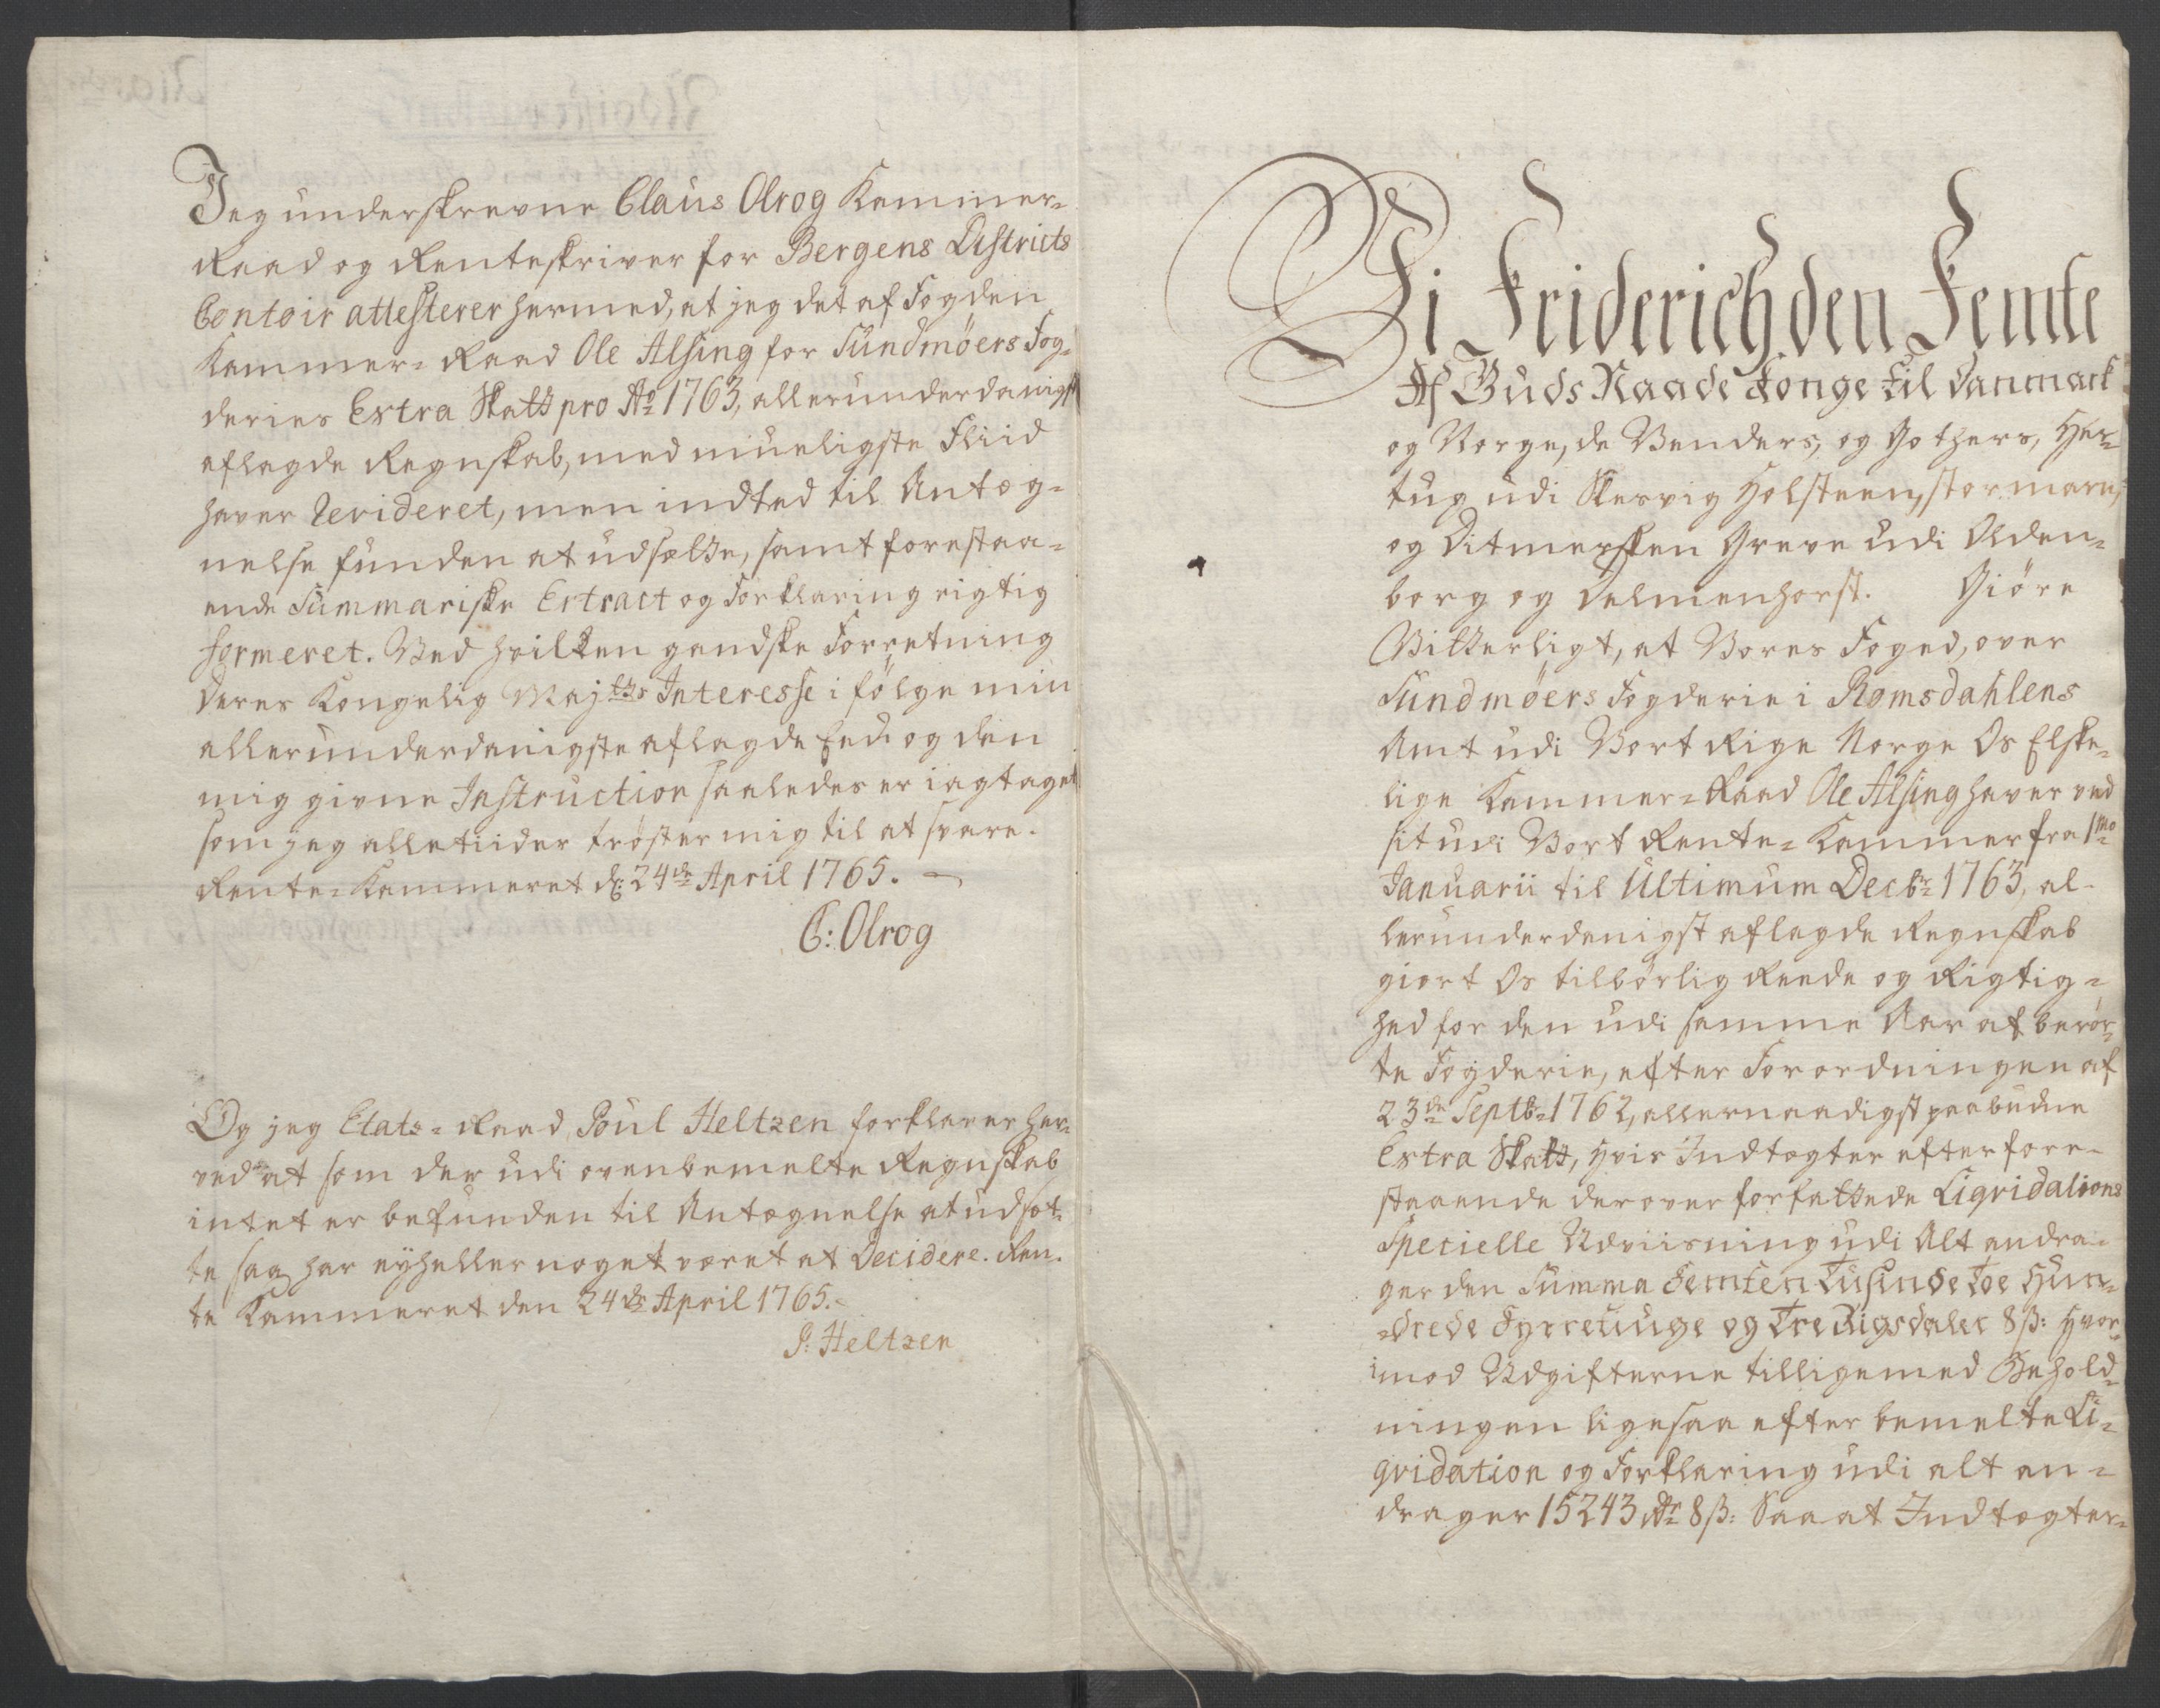 Jeg underskrevne Claus Olrog Kammer-
Raad og Renteskriver for Bergens Districts
Contoir attesterer hermed, at jeg det af Fogden
Kammer-Raad Ole Alsing for Sundmöers Fog-
deries Extra Skatt pro Ao 1763, allerunderdanigst
aflagde Regnskab, med mueligste Fliid
haver Revideret, men indted til Antæg-
nelse funden at udsætte, samt forestaa-
ende Summariske Extract og Forklaring rigtig
formeret. Ved hvilken gandske Forretning
Deres Kongelig Majtts Interesse i følge min
allerunderdanigste aflagde Eed og den
mig givne Instruction saaledes er iagtaget
som jeg alletiider trøster mig til at svare.
Rente-Kammeret d: 24de April 1765.
C: Olrog
Og jeg Etats-Raad Poul Heltzen forklarer her-
ved at som der udi ovenbemelte Regnskab
intet er befunden til Antægnelse at udsæt-
te saa har ey heller noget været at Decidere. Ren-
te Kammeret den 24de April 1765.
P: Heltzen
Vi Friderich den Femte
Af Guds Naade Konge til Danmark
og Norge, de Venders, og Gothers, Her-
tug udi Slesvig Holsteen, Stormarn,
og Ditmersken Greve udi Olden-
borg og Delmenhorst. Giöre
Vitterligt, at Vores Foged, over
Sundmöers Fogderie i Romsdahlens
Amt udi Vort Rige Norge Os Elske-
lige Kammer-Raad Ole Alsing haver ved
sit udi Vort Rente-Kammer fra 1mo
Januarii til Ultimum Decbr 1763, al-
lerunderdanigst aflagde Regnskab
giort Os tilbörlig Reede og Rigtig-
hed for den udi samme Aar af berör-
te Fogderie, efter Forordningen af
23de Septbr 1762, allernaadigst paabudne
Extra Skatt, hvis Indtægter efter fore-
staaende derover forfattede Liqvidations
Specielle Udviisning udi Alt andra-
ger den Summa Femten Tusinde Toe Hun-
drede Fyrretiuge og Tre Rigsdaler 8 ß: hvor-
imod Udgifterne tilligemed Behold-
ningen ligesaa efter bemelte Li-
qvidation og Forklaring udi alt an-
drager 15243 rdr 8 ß: Saa at Indtægter-